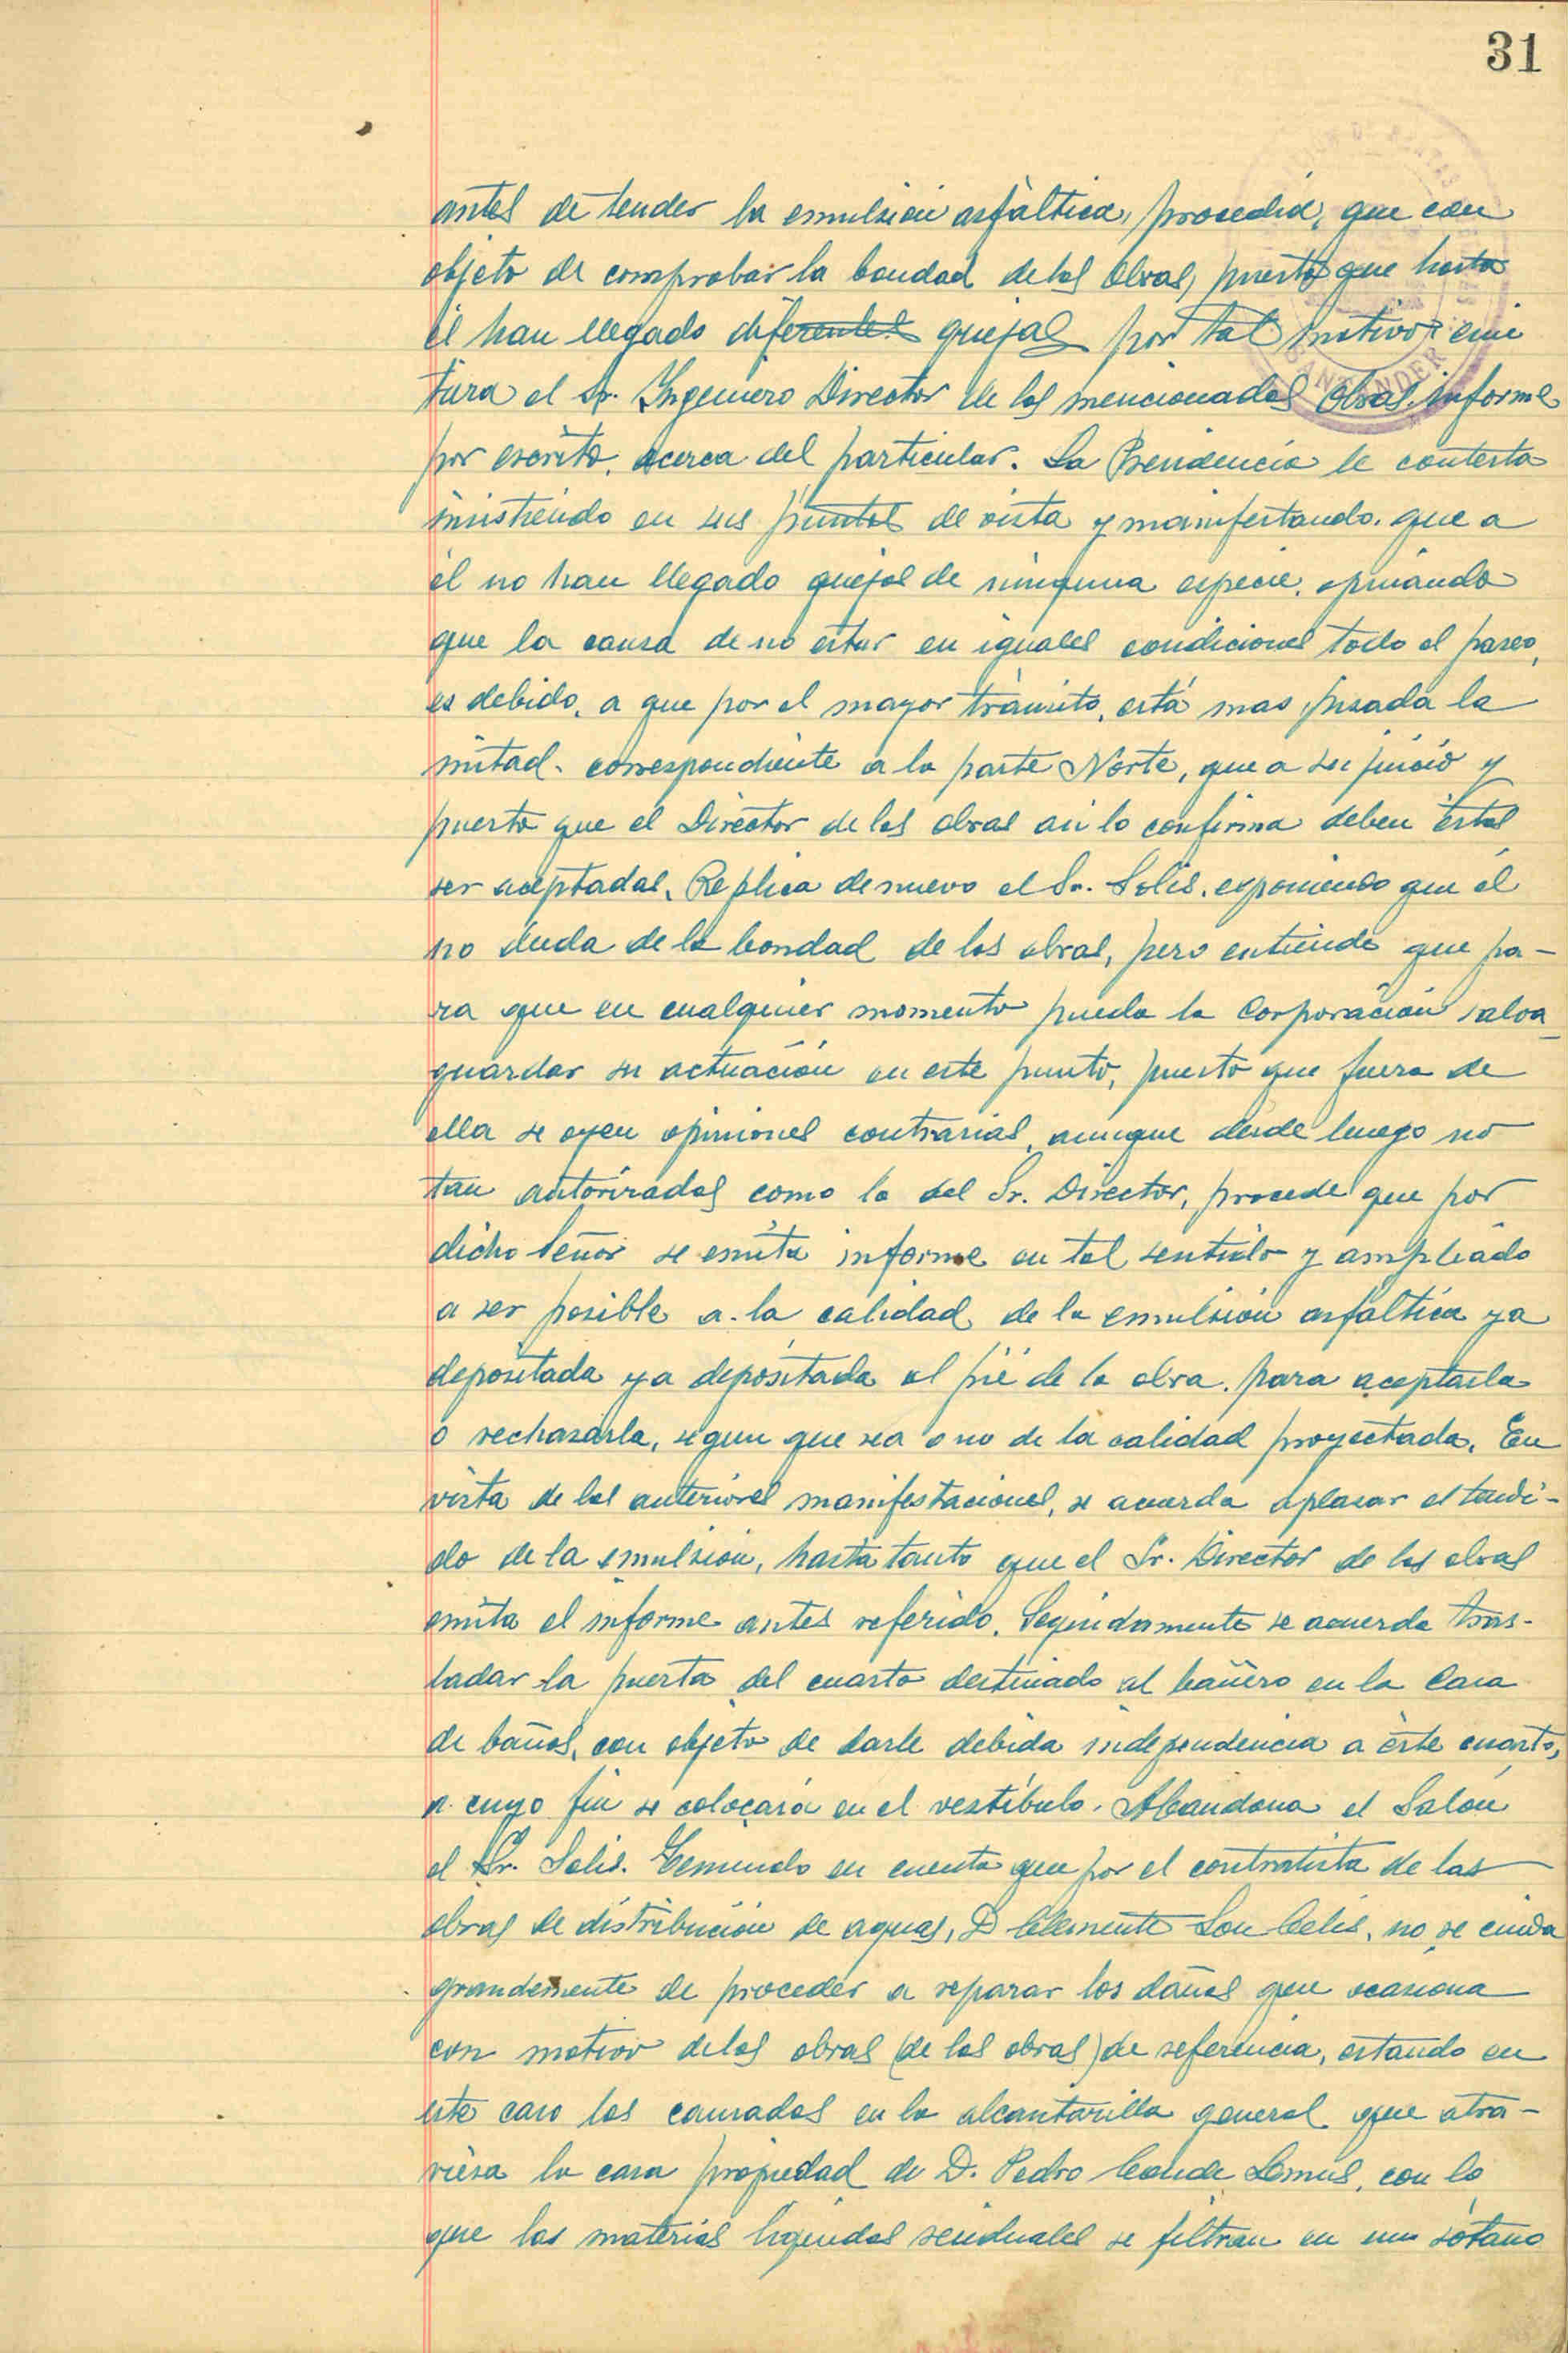 31
antes de tender la emulsión asfáltica, procedía, que con
objeto de comprobar la bondad de las obras, puesto que hasta
él han llegado diferentes quejas por tal motivo, emi
tiera el Sr. Ingeniero Director de las mencionadas obras informe
por escrito, acerca del particular. La Presidencia le contesta
insistiendo en sus puntos de vista y manifestando, que a
él no han llegado quejas de ninguna especie, opinando
que la causa de no estar en iguales condiciones todo el paseo,
es debido, a que por el mayor tránsito, está mas pisada la
mitad correspondiente a la parte Norte, que a su juicio y
puesto que el Director de las obras asi lo confirma deben éstas
ser aceptadas. Replica de nuevo el Sr. Solis, exponiendo que él
no duda de la bondad de las obras, pero entiende que pa-
ra que en cualquier momento pueda la Corporación salva-
guardar su actuación en este punto, puesto que fuera de
ella se oyen opiniones contrarias, aunque desde luego no
tan autorizadas como la del Sr. Director, procede que por
dicho Señor se emita informe en tal sentido y ampliado
a ser posible a la calidad de la emulsión asfáltica ya
depositada ya depositada al pié de la obra, para aceptarla
o rechazarla, segun que sea o no de la calidad proyectada. En
vista de las anteriores manifestaciones, se acuerda aplazar el tendi-
do de la emulsión, hasta tanto que el Sr. Director de las obras
emita el informe antes referido. Seguidamente se acuerda tras-
ladar la puerta del cuarto destinado al bañero en la Casa
de baños, con objeto de darle debida independencia a éste cuarto,
a cuyo fin se colocará en el vestíbulo. Abandona el Salón
el Sr. Solis. Teniendo en cuenta que por el contratista de las
obras de distribución de aguas, D Clemente Lou Celis, no se cuida
grandemente de proceder a reparar los daños que ocasiona
con motivo de las obras (de las obras) de referencia, estando en
este caso los causados en la alcantarilla general que atra-
viesa la casa propiedad de D. Pedro Conde Lemus, con lo
que las materias liquidas residuales se filtran en un sótano
SANTANDER